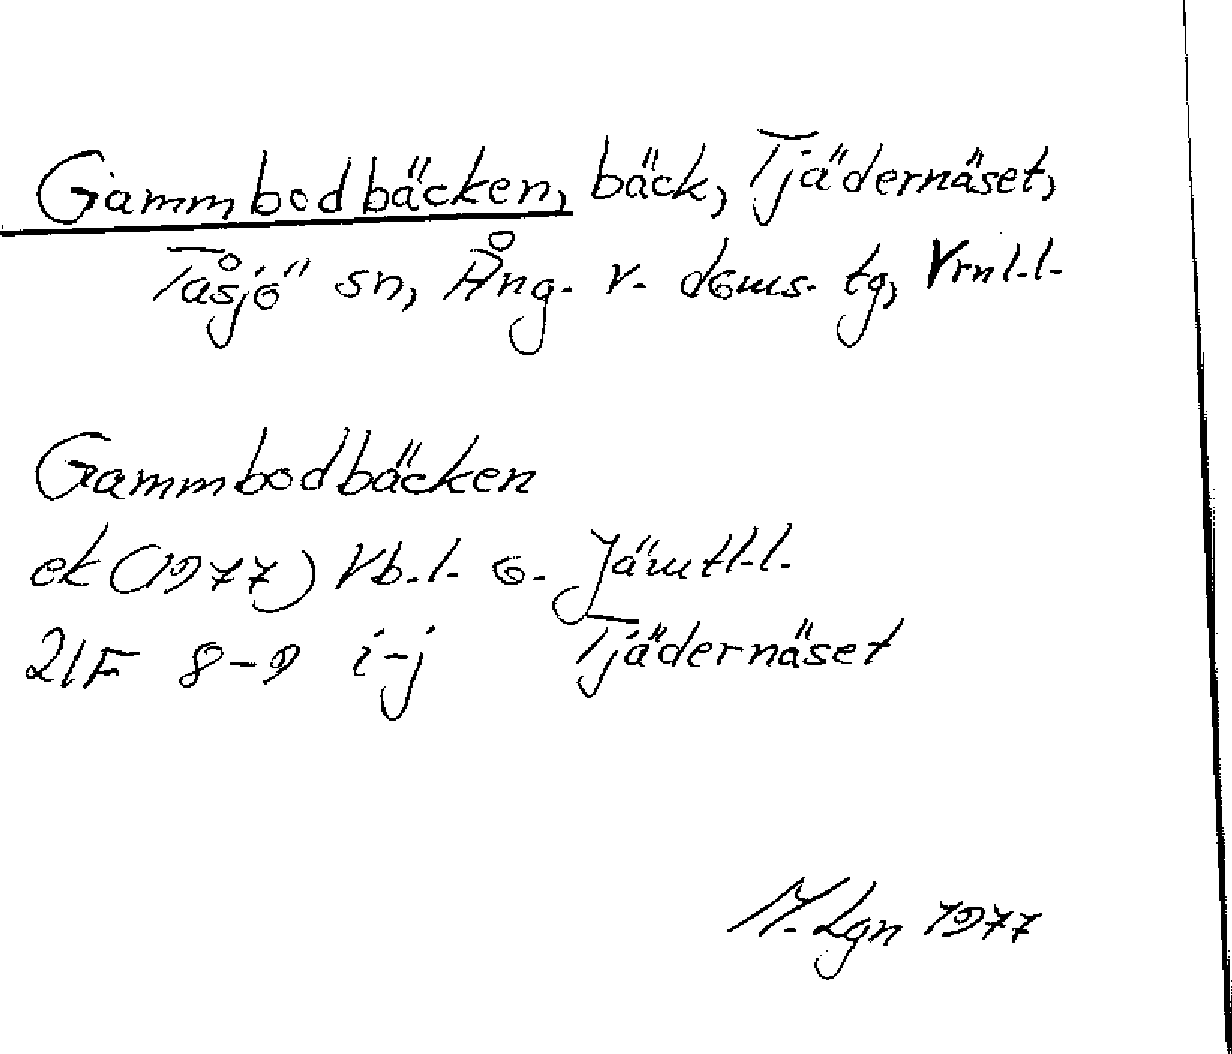 Gammbodbäcken, bäck, Tjädernäset,
Tåsjö sn, Ång. v. doms. tg, Vrnl.l.
Gammbodbäcken
ek (1977) Vb.l. o. Jämtl.l.
21F 8-9 i-j Tjädernäset
M. Lgn 1977